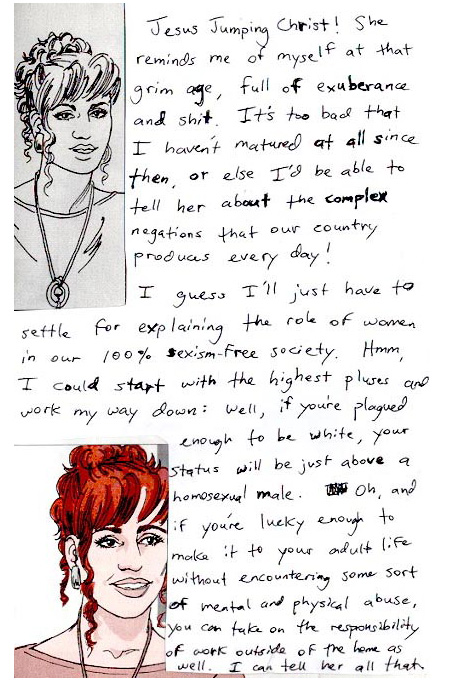 Jesus Jumping Christ! She
reminds me of myself at that
grim age, full of exuberance
and shit. It's too bad that
I haven't matured at all since
then, or else I'd be able to
tell her about the complex
negations that our country
produces every day!
I guess I'll just have to
settle for explaining the role of women
in our 100% sexism-free society. Hmm,
I could start with the highest pluses and
work my way down: well, if you're plagued
enough to be white, your
status will be just above a
homosexual male. Oh, and
if you're lucky enough to
make it to your adult life
without encountering some sort
of mental and physical abuse,
you can take on the responsibility
of work outside of the home as
well. I can tell her all that